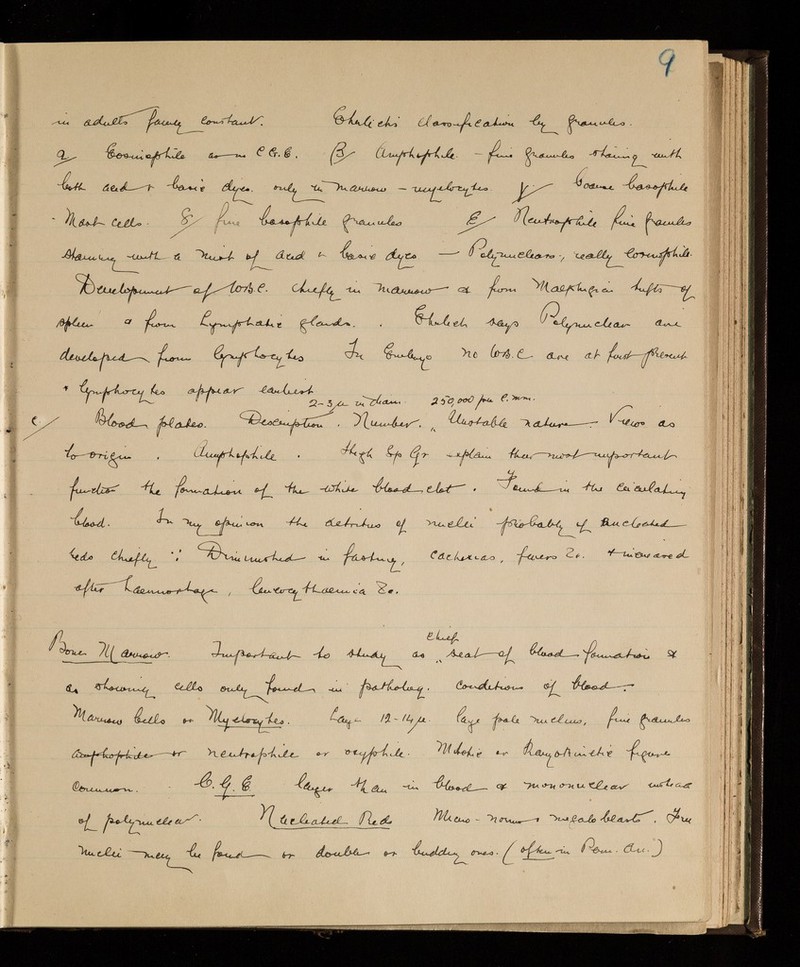 9
in adults fairly constant. Ehrlich's classification by granules.
α/ Eosinophile or C.G.E. - β/ Amphophile - fine granules staining with
both acid + basic dyes. only in marrow - myelocytes γ/ Coarse basophile
- Mast cells. δ/ fine basophile granules ε/ Neutrophile fine granules
staining with a mixt of acid + basic dyes — Polynuclears, really eosinophile.
Development of W.B.C. chiefly in marrow & from Malpighian tufts of
spleen & from lymphatic glands. Ehrlich says Polynuclear are
developed from lymphocytes In Embryo no W.B.C. are at first present
+ lymphocytes appear earliest
2-3µ in diam. 250,000 per c.mm.
c/ Blood plates. Description. Number. Unstable nature. Views as
to origin. Amphophile. High Sp Gr explain their most important
function the formation of the white blood clot. Found in the circulating
blood. In my opinion the detritus of nuclei probably of nucleated
reds chiefly ∵ Diminished in fasting, cachexias, fevers &c. + increased
after haemorrhage, leucocythaemia &c.
Bone Marrow. Important to study as chief seat of blood formation &
as showing cells only found in patholog. conditions of blood.
Marrow Cells or Myelocytes. Large 12-14µ large pale nucleus, fine granules
amphophile or neutrophile or oxyphile. Mitotic or Karyokinetic figures
common. C.G.E larger than in blood & mononuclear instead
of polynuclear. Nucleated Reds Micro - normo - + megaloblasts. Free
nuclei may be found or double or budding ones. (often in Pern. An.)